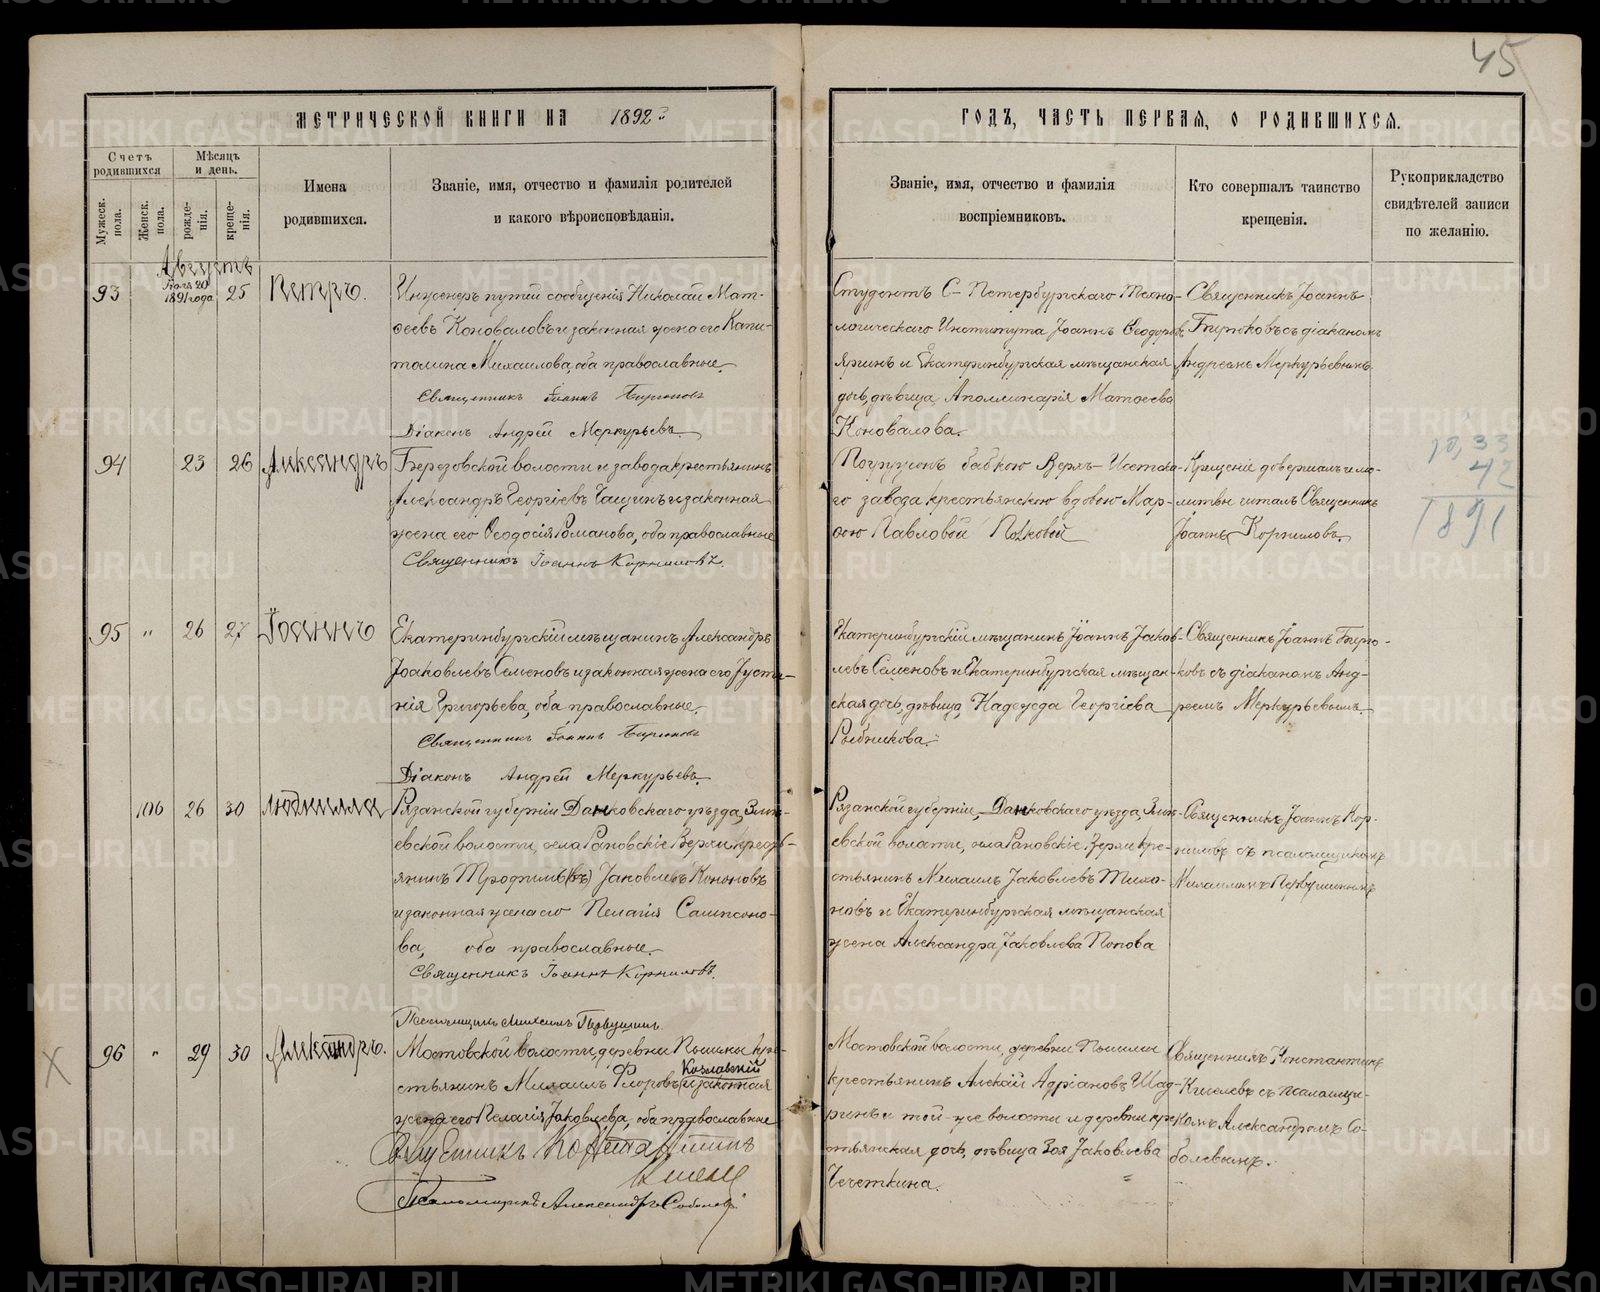 45
МЕТРИЧЕСКОЙ КНИГИ НА 1892
ГОДЪ, ЧАСТЬ ПЕРВАЯ, О РОДИВШИХСЯ.
Счетъ родившихся
Мужеск. пола.
Женск. пола.
Мѣсяцъ и день.
рожде-нія.
креще-нія.
Имена
родившихся.
Званіе, имя, отчество и фамилія родителей
и какого вѣроисповѣданія.
Званіе, имя, отчество и фамилія
воспріемниковъ.
Кто совершалъ таинство
крещенія.
Рукоприкладство
свидѣтелей записи
по желанію.
Августъ
93
20
1891 года
25
Петръ.
Инженеръ путей сообщенія Николай Мат-
ѳеевъ Коноваловъ и законная жена его Капи-
толина Михаилова, оба православные.
Священникъ Іоаннъ Бирюковъ
Діаконъ Андрей Меркурьевъ.
Студентъ С-Петербургскаго Техно-
логическаго Института Іоаннъ Ѳеодоровъ
Ягинъ и Екатеринбургская мѣщанская
дочь, дѣвица Аполлинарія Матѳеева
Коновалова.
Священникъ Іоаннъ
Бирюковъ съ діакономъ
Андреемъ Меркурьевымъ.
94
23
26
Александръ
Березовской волости и завода крестьянинъ
Александръ Георгіевъ и законная
жена его Ѳеодосія Романова, оба православные
Священникъ Іоаннъ Корниловъ.
Погружонъ бабкою Верхъ-Исетска-
го завода крестьянскою вдовою Мар-
ѳою Павловой
Крещеніе довершалъ и мо-
литвы читалъ Священникъ
Іоаннъ Корниловъ.
10,33
42
1891
95
"
26
27
Іоаннъ
Екатеринбургскій мѣщанинъ Александръ
Іоаковлевъ Семеновъ и законная жена его Усти-
нія Григорьева, оба православные.
Священникъ Іоаннъ Бирюковъ
Діаконъ Андрей Меркурьевъ.
Екатеринбургскій мѣщанинъ Іоаннъ Іаков-
левъ Семеновъ и Екатеринбургская мѣщан-
ская дочь, дѣвица, Надежда Георгіева
Рыбникова.
Священникъ Іоаннъ Бирю-
ковъ съ діакономъ Анд-
реемъ Меркурьевымъ.
106
26
30
Людмилла
Рязанской губерніи Данковскаго уѣзда,
евской волости, села Рановскіе Верхи крестъ-
янинъ Трофимъ Іаковлевъ Кононовъ
и законная жена его Пелагія Сампсоно-
ва, оба православные.
Священникъ Іоаннъ Корниловъ.
Псаломщикъ Михаилъ Первушинъ.
Рязанской губерніи, Данковскаго уѣзда,
евской волости, села Рановскіе Верхи кре-
стьянинъ Михаилъ Іаковлевъ Тихо-
новъ и Екатеринбургская мѣщанская
жена Александра Іаковлева Попова
Священникъ Іоаннъ Кор-
ниловъ съ псаломщикомъ
Михаиломъ Первушинымъ
Х
96
"
29
30
Александръ.
Мостовской волости, деревни Пышмы кре-
стьянинъ Михаилъ Флоровъ Козловскій и законная
жена его Пелагія Іаковлева, оба православные
Священникъ Константинъ
Киселевъ
Псаломщикъ Александръ Соболевъ
Мостовской волости, деревни Пышмы
крестьянинъ Алексій Адріановъ Шад-
ринъ и той-же волости и деревни кре-
стьянская дочь, дѣвица Зоя Іаковлева
Чечеткина.
Священникъ Константинъ
Киселевъ съ псаломщи-
комъ Александромъ Со-
болевымъ.